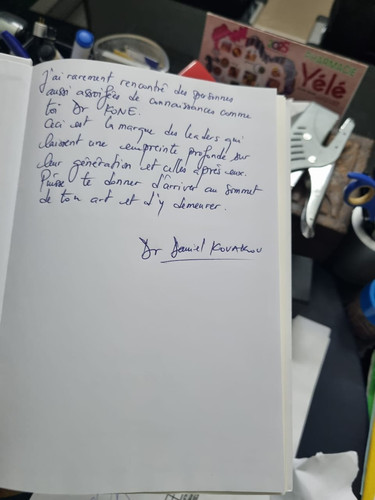 J'ai rarement rencontré des personnes
aussi assoiffées de connaissances comme
toi Dr KONE.
Ceci est la marque des leaders qui
laissent une empreinte profonde sur
leur génération et celles après eux.
Puisse te donner d'arriver au sommet
de ton art et d'y demeurer.
Dr Daniel
PHARMACIE
Yélé